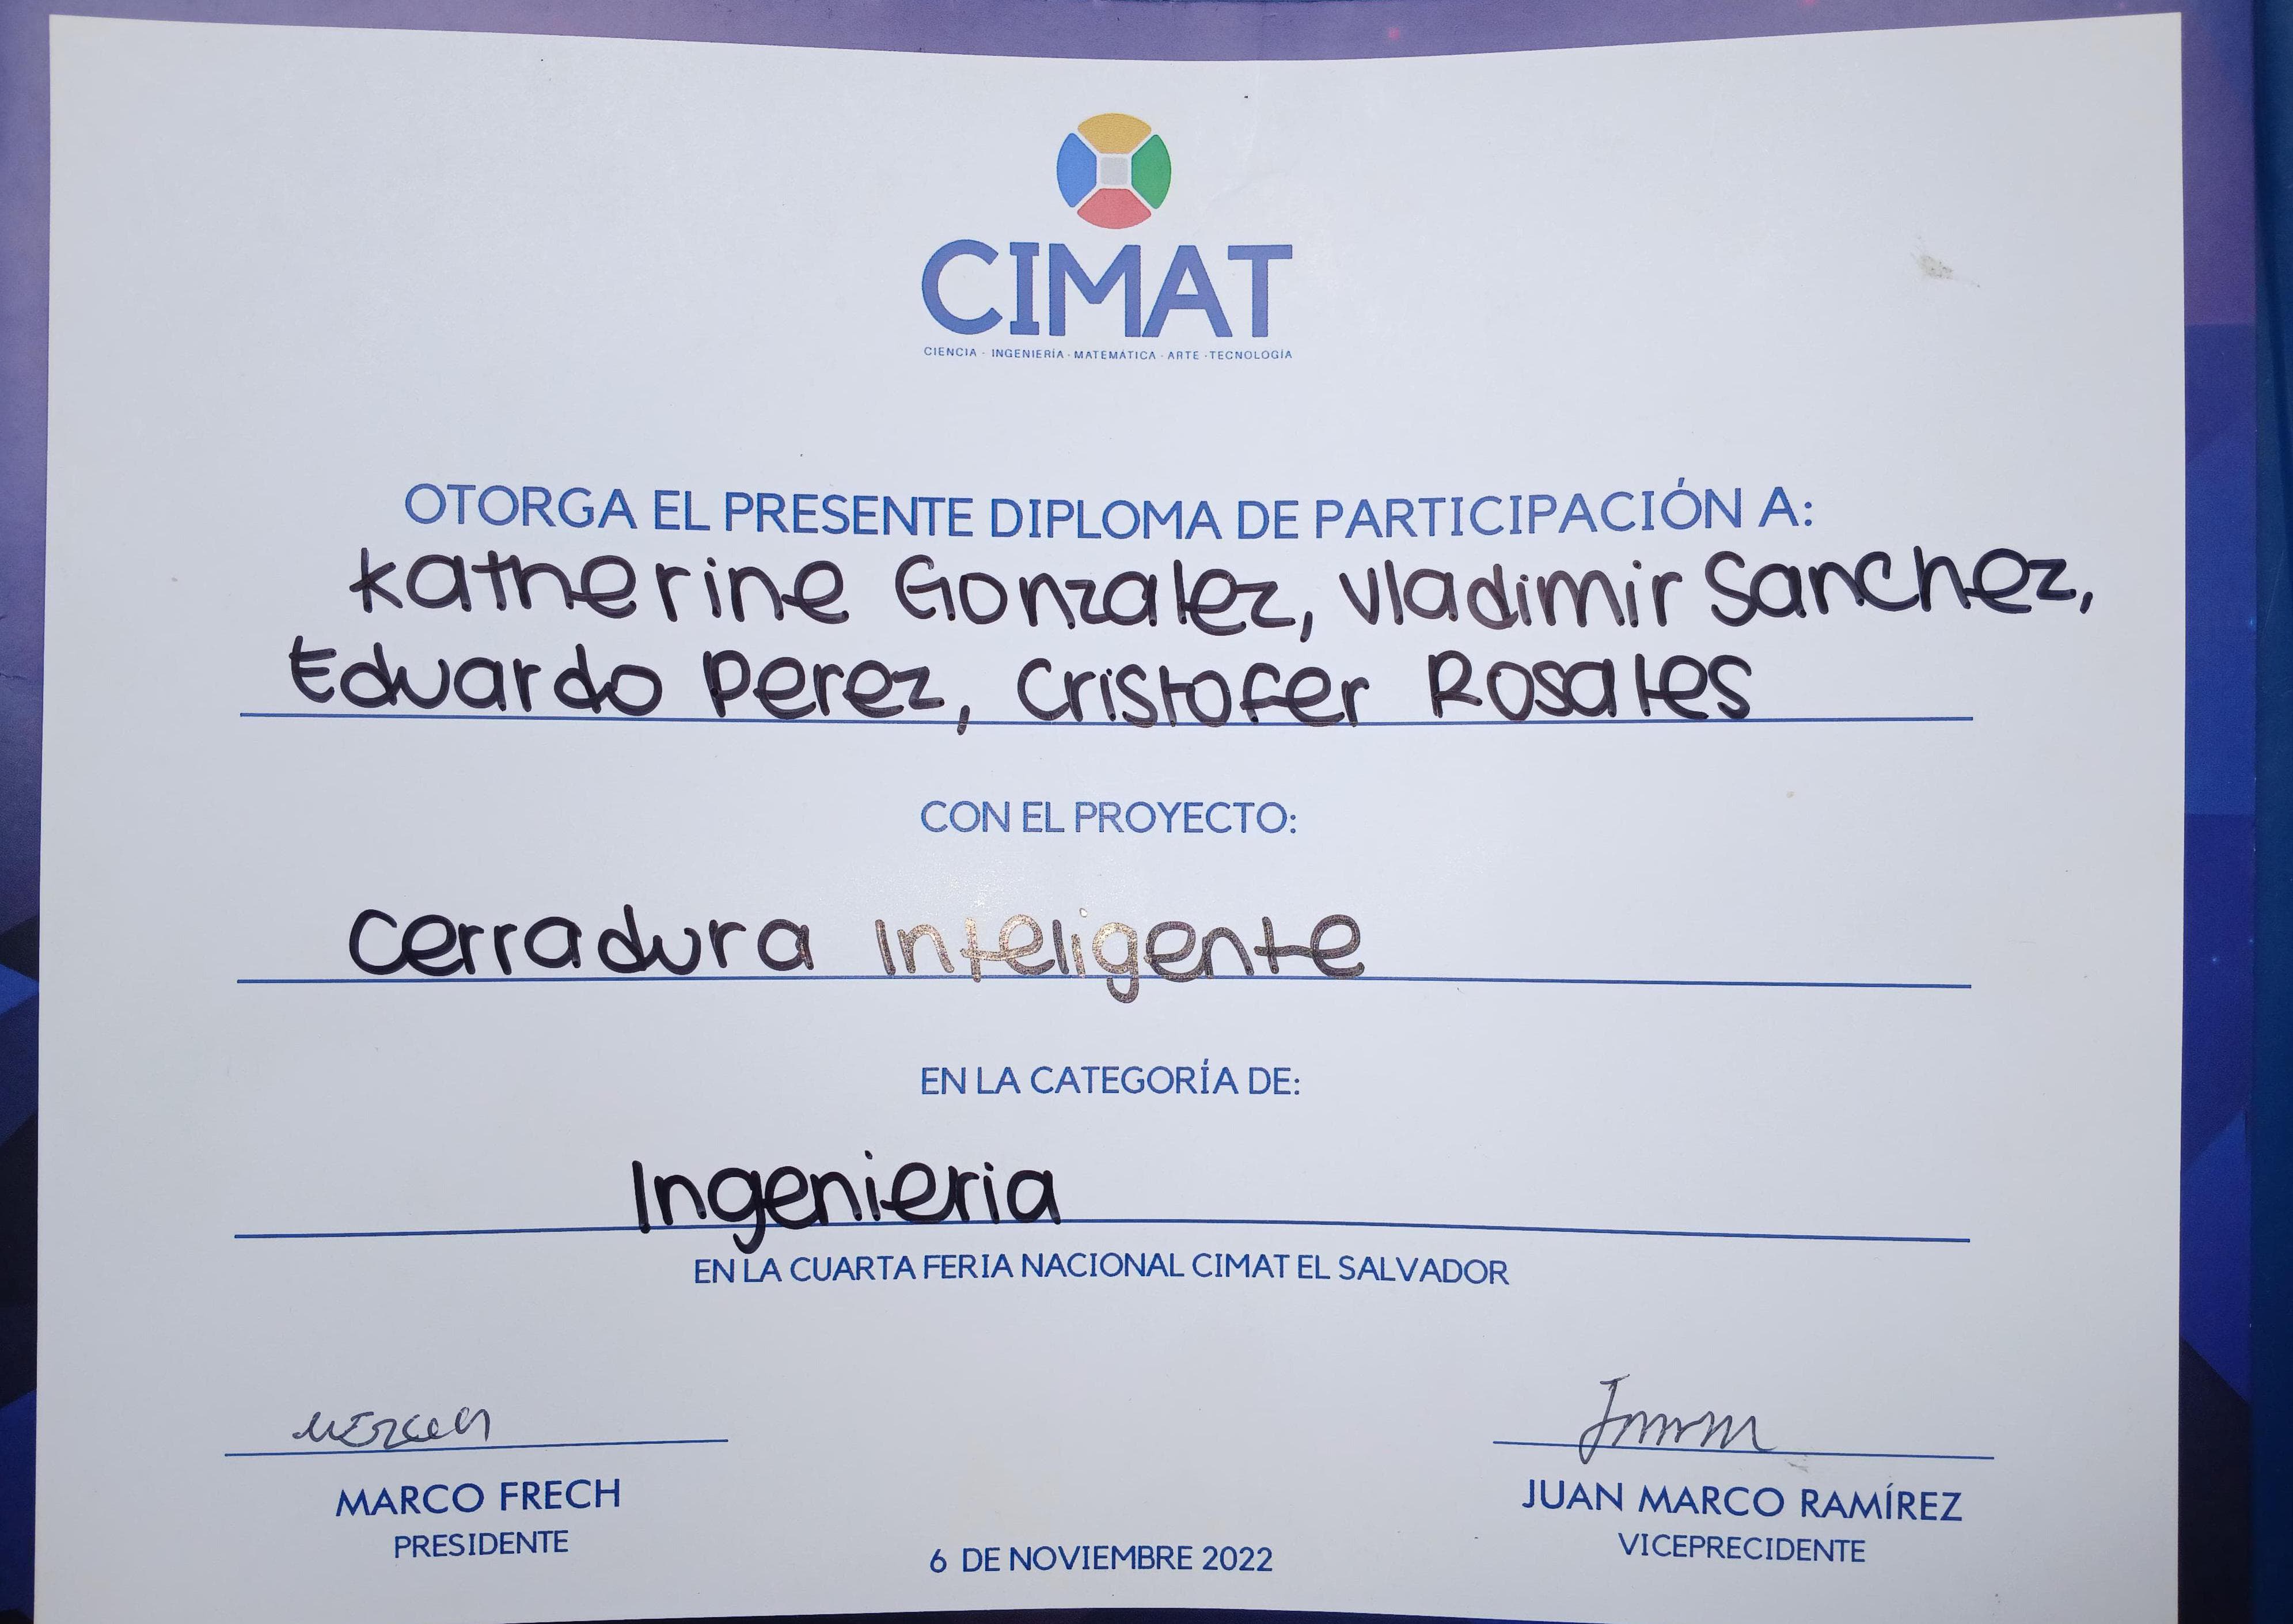 CIMAT
CIENCIA · INGENIERÍA · MATEMÁTICA · ARTE · TECNOLOGÍA
OTORGA EL PRESENTE DIPLOMA DE PARTICIPACIÓN A:
Katherine Gonzalez, Vladimir Sanchez,
Eduardo Perez, Cristofer Rosales
CON EL PROYECTO:
Cerradura Inteligente
EN LA CATEGORÍA DE:
Ingenieria
EN LA CUARTA FERIA NACIONAL CIMAT EL SALVADOR
MARCO FRECH
PRESIDENTE
6 DE NOVIEMBRE 2022
JUAN MARCO RAMÍREZ
VICEPRECIDENTE